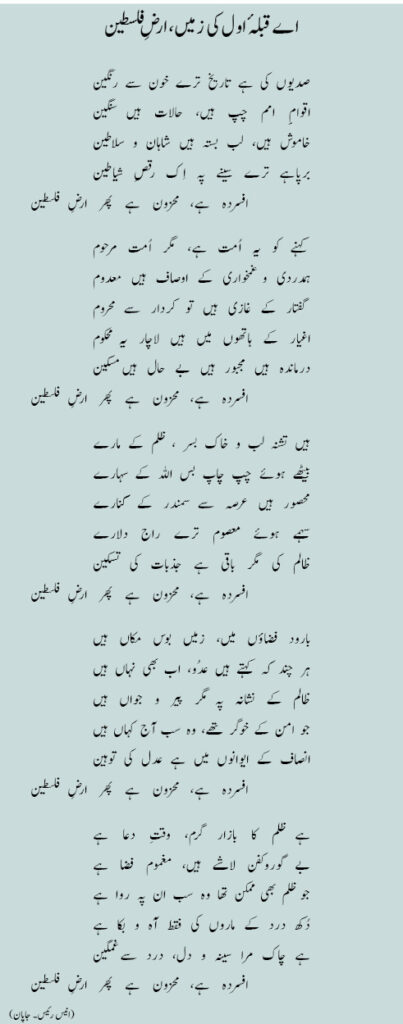 اے قبلۂ اول کی زمیں، ارضِ فلسطین
صدیوں کی ہے تاریخ ترے خون سے رنگین
اقوامِ امم چپ ہیں، حالات ہیں سنگین
خاموش ہیں، لب بستہ ہیں شاہان و سلاطین
برپاہے ترے سینے پہ اِک رقصِ شیاطین
افسردہ ہے، محزون ہے پھر ارضِ فلسطین
کہنے کو یہ اُمت ہے، مگر اُمت مرحوم
ہمدردی و غمخواری کے اوصاف ہیں معدوم
گفتار کے غازی ہیں تو کردار سے محروم
اغیار کے ہاتھوں میں ہیں لاچار یہ محکوم
درماندہ ہیں مجبور ہیں بے حال ہیں مسکین
افسردہ ہے، محزون ہے پھر ارضِ فلسطین
ہیں تشنہ لب و خاک بسر ، ظلم کے مارے
بیٹھے ہوئے چپ چاپ بس اللہ کے سہارے
محصور ہیں عرصہ سے سمندر کے کنارے
سہمے ہوئے معصوم ترے راج دلارے
ظالم کی مگر باقی ہے جذبات کی تسکین
افسردہ ہے، محزون ہے پھر ارضِ فلسطین
بارود فضاؤں میں، زمیں بوس مکاں ہیں
ہر چند کہ کہتے ہیں عدُو، اب بھی نہاں ہیں
ظالم کے نشانہ پہ مگر پیر و جواں ہیں
جو امن کے خوگر تھے، وہ سب آج کہاں ہیں
انصاف کے ایوانوں میں ہے عدل کی توہین
افسردہ ہے، محزون ہے پھر ارضِ فلسطین
ہے ظلم کا بازار گرم، وقتِ دعا ہے
بے گوروکفن لاشے ہیں، مغموم فضا ہے
جو ظلم بھی ممکن تھا وہ سب ان پہ روا ہے
دُکھ درد کے ماروں کی فقط آہ و بکا ہے
ہے چاک مرا سینہ و دل، درد سے غمگین
افسردہ ہے، محزون ہے پھر ارضِ فلسطین
(انیس رئیس۔ جاپان)